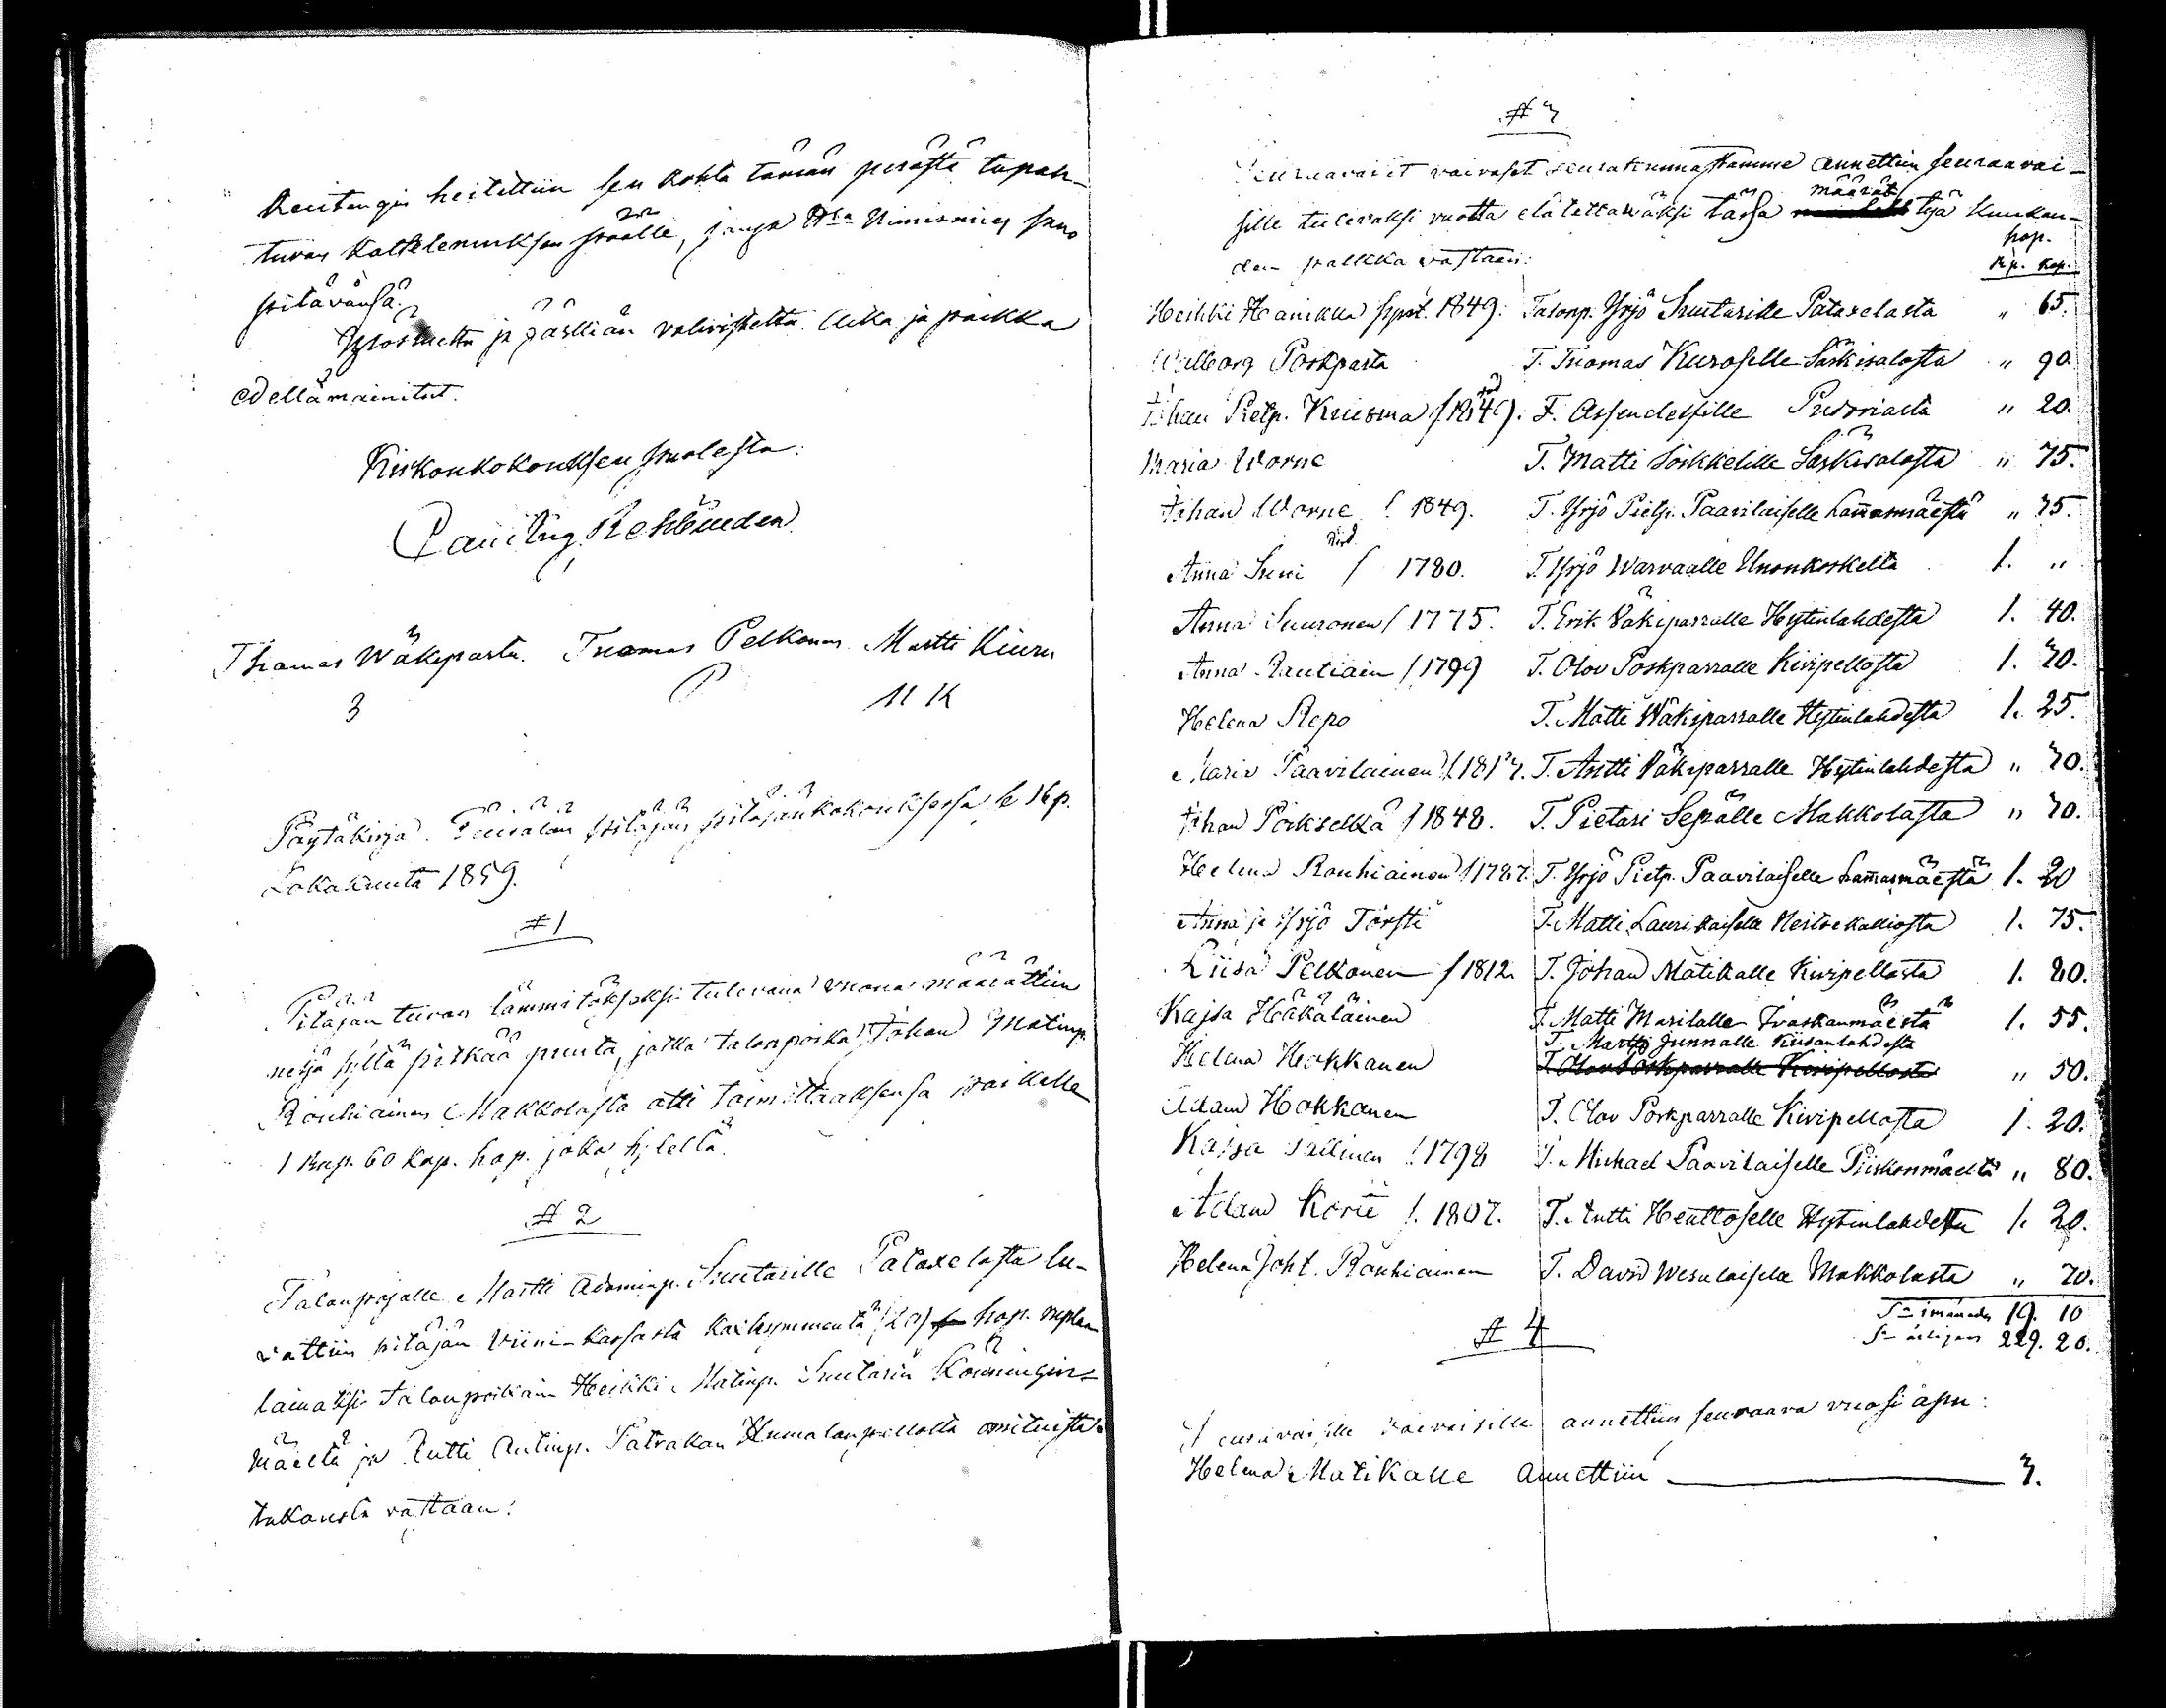 kuitengin heitettiin sen kohta tämän perästä tapah-
tuvan katselemuksen päälle, jonga Hra Nimismies sano
pitävänsä.
Ylösluettu ja päällän valivistettu. Aika ja paikka
edellämainitut.
Kirkonkokouksen puolesta:
Thomas Wäkiparta. Tuomas Pelkonen. Martti Kiuru
3 P M K
Pöytäkirja Pitäjän pitäjänkokouksessa le 16 p.
Lokakuuta 1859.
# 1
Pitäjän tuvan lämmitökseksi tulevana vuona määrättiin
neljä syltä pitkää puuta, jotka talonpoika Johan Matinp.
Rouhiainen Makkolasta otti toimittaaksensa paikalle
1 Rup. 60 Kop. hop. joka syleltä.
# 2
Talonpojalle Martti Adaminp. Suutarille Pataxelasta lu-
vattiin pitäjän Viini-kassasta kaxikymmentä (20) hop. ruplaa
lainaksi talonpoikain Heikki Matinp. Suutarin Konningin-
mäeltä ja Antti Antinp. Patrakan Kumalanpellolta omituista
takausta vastaan.
# 3
Seuraavaiset vaivaset seurakunnastamme annettiin seuraavai-
sille tulevaksi vuotta elätettäwäksi tässä määrät tyä kuukau-
den palkka vastaan:
hop.
Rp. Kop.
Heikki Hanikka 1849. Talonp. Yrjö Suutarille Pataxelasta " 65.
Walborg Porkparta T. Tuomas Kuroselle Särkisalosta " 90.
Johan Pietp. Kuisma f. 1849. F. Assendelfille Pudoriasta " 20.
Maria Worne T. Matti Soikkelille Särkisalosta " 75.
Johan Worne f. 1849. T. Yrjö Pietp. Paavilaiselle Lammasmäestä " 75.
Anna Suni f 1780. T. Yrjö Warvaalle Unonkoskelta 1. "
Anna Suuronen f 1775. T. Erik Wäkiparralle Hytinlahdesta 1. 40.
Anna Rautiain f 1799 T. Olov Porkparralle Kivipellosta 1. 70.
Helena Repo T. Matti Wäkiparralle Hytinlahdesta 1. 25.
Maria Paavilainen f. 1817. T. Antti Wäkiparralle Hytinlahdesta " 70.
Johan Poikselkä f 1848. T. Pietari Sepälle Makkolasta " 70.
Helena Rouhiainen f 1787. T. Yrjö Pietp. Paavilaiselle Lammasmäestä 1. 20
Anna ja Yrjö Törsti T. Matti Laurikaiselle Heitsekalliosta 1. 75.
Liisa Pelkonen f 1812. T. Johan Matikalle Kivipellosta 1. 80.
Kajsa Häkäläinen T. Matti Masilalle Iivaskanmäestä 1. 55.
T. Martti Junnalle Kiisanlahdesta
Helena Hokkanen T. Olov Porkparralle Kivipellosta " 50.
Adam Hokkanen T. Olov Porkparralle Kivipellosta 1. 20.
Kajsa Sallinen f. 1798 T. Michael Paavilaiselle Piiskonmäeltä " 80.
Adam Korie f. 1807. T. Antti Henttoselle Hytinlahdesta 1. 20.
Helena Joht. Rouhiainen T. David Wesalaiselle Makkolasta " 70.
Sa i månaden 19. 10
Sa årligen 229. 20.
# 4
Seuraavaisille vaivaisille annettiin seuraava vuosi apu:
Helena Matikalle annettiin 3.